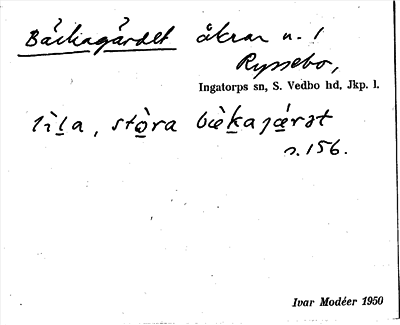 Bäckagärdet åkrar n. 1
Ryssebo,
Ingatorps sn, S. Vedbo hd, Jkp. l.
lìla, stòra bækajæ̀rət
s. 156.
Ivar Modéer 1950